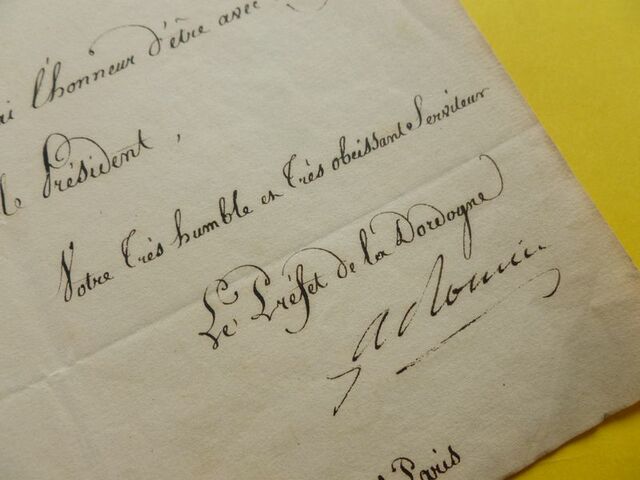 ai l'honneur d'être avec
le Président,
Votre très humble et très obéissant Serviteur
Le Préfet de la Dordogne
A Romieu
Paris